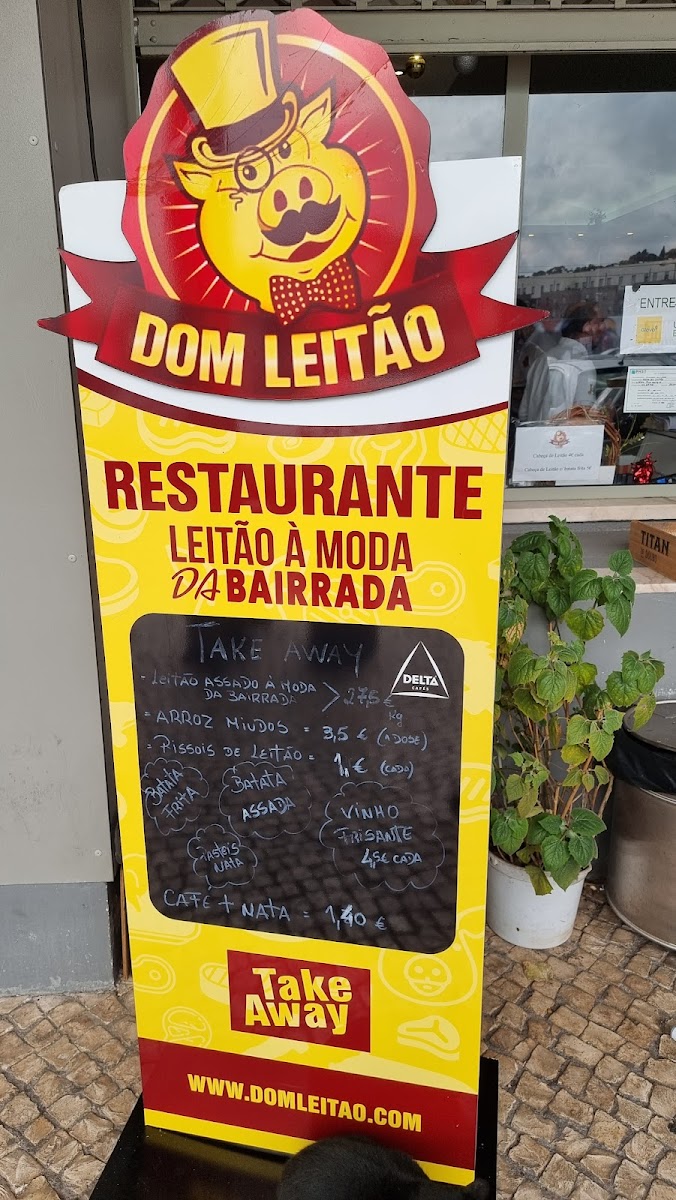 DOM LEITÃO
RESTAURANTE
LEITÃO À MODA
DA BAIRRADA
TAKE AWAY
- LEITÃO ASSADO À MODA
DA BAIRRADA > 27,5 €
Kg
DELTA
CAFÉS
- ARROZ MIUDOS = 3,5 € (A DOSE)
- RISSOIS DE LEITÃO = 1,€ (CADA)
BATATA
FRITA
BATATA
ASSADA
VINHO
FRISANTE
4,5€ CADA
PASTEIS
NATA
CAFÉ + NATA = 1,40 €
Take
Away
WWW.DOMLEITAO.COM
ENTRE
Cabeça de Leitão 4€ cada
TITAN